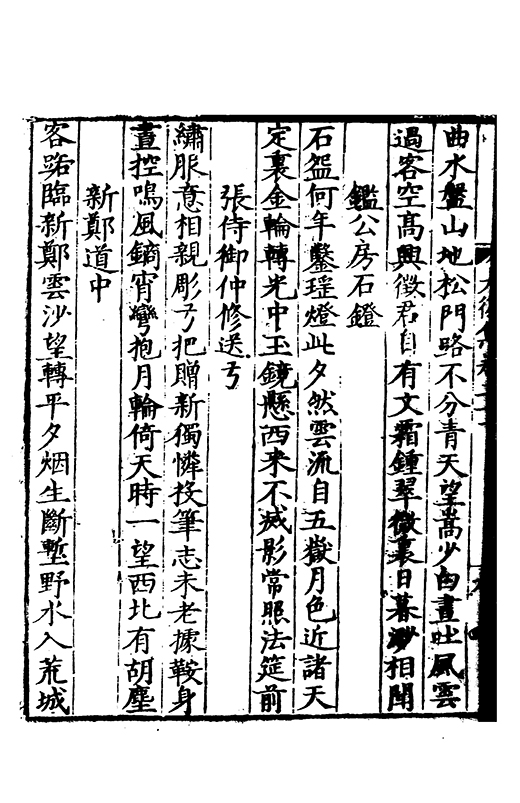 曲水盤山地松門路不分青天望嵩少白晝吐風雲
過客空高興徵君自有文霜鍾翠微裏日暮渺相聞
鑑公房石鐙
石盌何年鑿瑤燈此夕然雲流自五嶽月色近諸天
定裏金輪轉光中玉鏡懸西來不滅影常照法筵前
張侍御仲修送弓
繡服意相親彫弓把贈新獨憐投筆志未老據鞍身
晝控鳴風鏑宵彎抱月輪倚天時一望西北有胡塵
新鄭道中
客路臨新鄭雲沙望轉平夕烟生斷塹野水入荒城